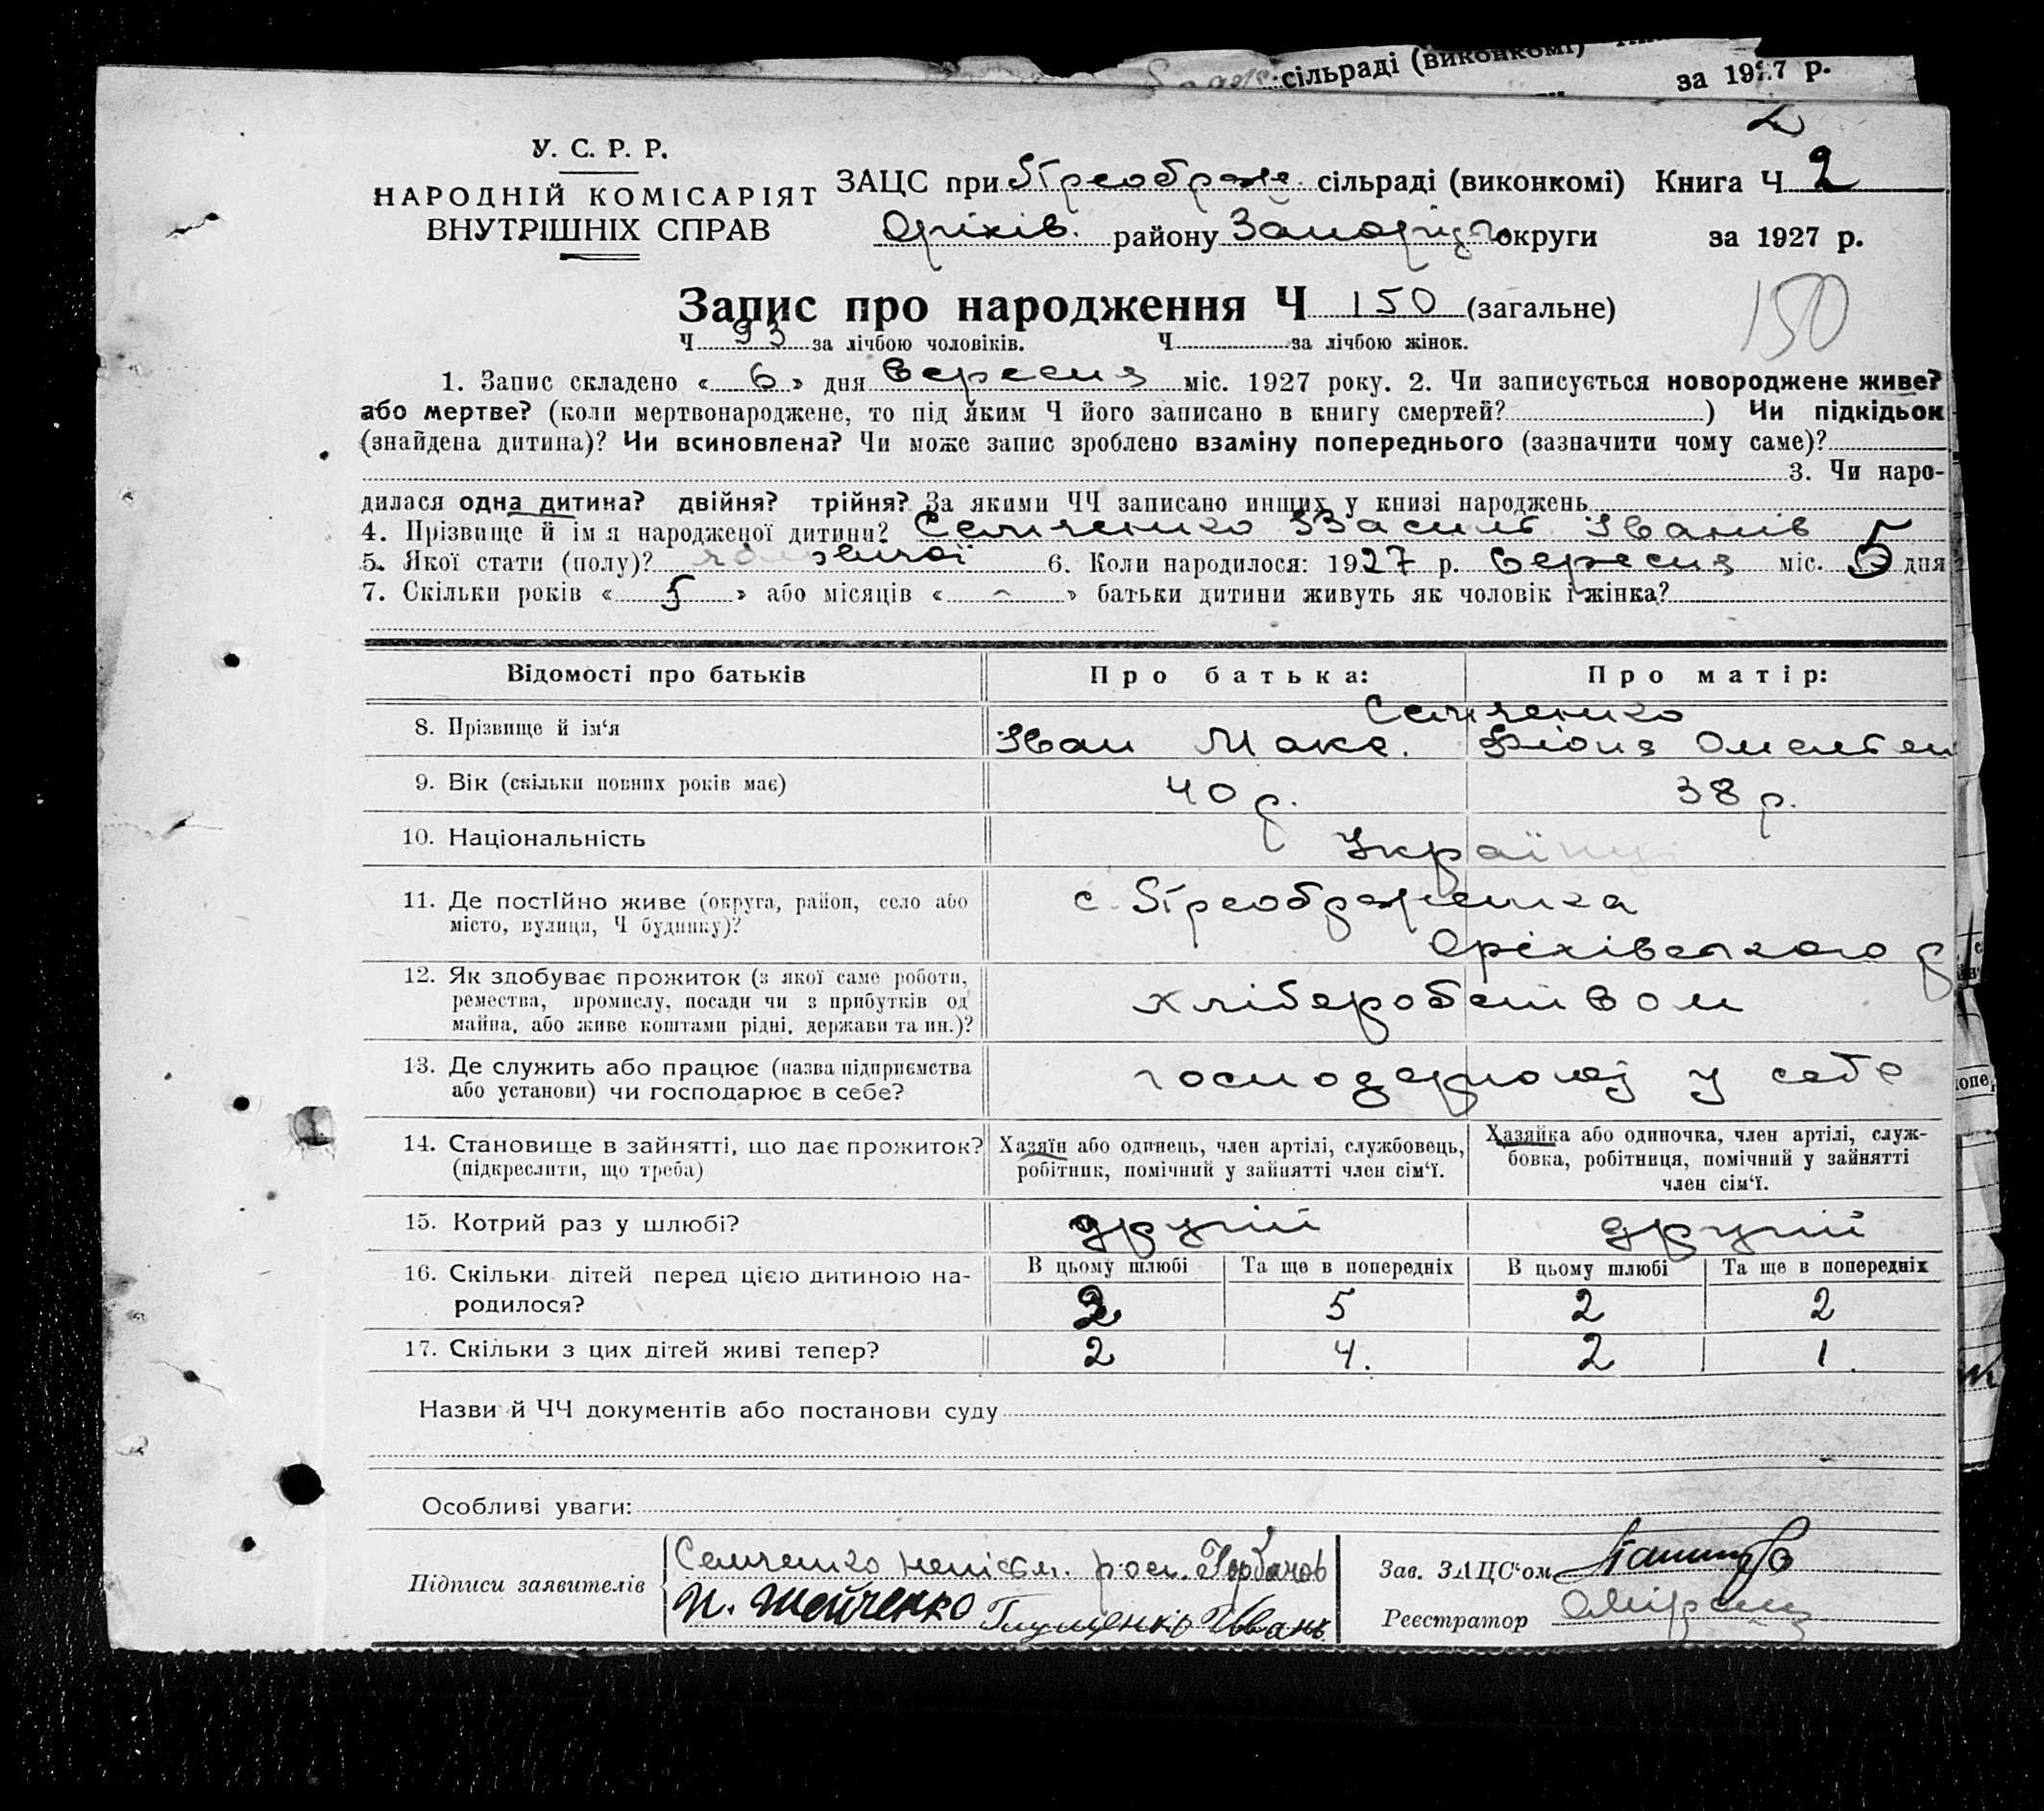 сільраді (виконкомі)
за 1927 р.
2
У. С. Р. Р.
НАРОДНІЙ КОМІСАРІЯТ
ВНУТРІШНІХ СПРАВ
ЗАЦС при Преображ. сільраді (виконкомі) Книга Ч 2
Оріхів. району Запоріз. округи за 1927 р.
Запис про народження Ч 150 (загальне)
150
Ч 93 за лічбою чоловіків. Ч за лічбою жінок.
1. Запис складено « 6 » дня вересня міс. 1927 року. 2. Чи записується новороджене живе?
або мертве? (коли мертвонароджене, то під яким Ч його записано в книгу смертей? ) Чи підкідьок
(знайдена дитина)? Чи всиновлена? Чи може запис зроблено взаміну попереднього (зазначити чому саме)?
3. Чи наро-
дилася одна дитина? двійня? трійня? За якими ЧЧ записано инших у книзі народжень
4. Прізвище й ім я народженої дитини? Семченко Василь Іванів
5. Якої стати (полу)? чоловічої 6. Коли народилося: 1927 р. вересня міс. 5 дня
7. Скільки років « 5 » або місяців « – » батьки дитини живуть як чоловік і жінка?
Відомості про батьків Про батька: Про матір:
Семченко
8. Прізвище й ім'я Іван Макс. Омелтен
9. Вік (скільки повних років має) 40 р. 38 р.
10. Національність Українці
11. Де постійно живе (округа, район, село або с. Преображенка
місто, вулиця, Ч будинку)? Оріхівського р
12. Як здобуває прожиток (з якої саме роботи,
ремества, промислу, посади чи з прибутків од хліберобством
майна, або живе коштами рідні, держави та ин.)?
13. Де служить або працює (назва підприємства господарюють у себе
або установи) чи господарює в себе?
14. Становище в зайнятті, що дає прожиток? Хазяїн або одинець, член артілі, службовець, Хазяйка або одиночка, член артілі, служ-
(підкреслити, що треба) робітник, помічний у зайнятті член сім'ї. бовка, робітниця, помічний у зайнятті
член сім'ї.
15. Котрий раз у шлюбі? другій другій
16. Скільки дітей перед цією дитиною на- В цьому шлюбі Та ще в попередніх В цьому шлюбі Та ще в попередніх
родилося? 2 5 2 2
17. Скільки з цих дітей живі тепер? 2 4. 2 1.
Назви й ЧЧ документів або постанови суду
Особливі уваги:
Підписи заявителів Семченко неписм. росп. Горбачов
И. Шейченко Глущенко Іванъ
Зав. ЗАЦС'ом
Реєстратор